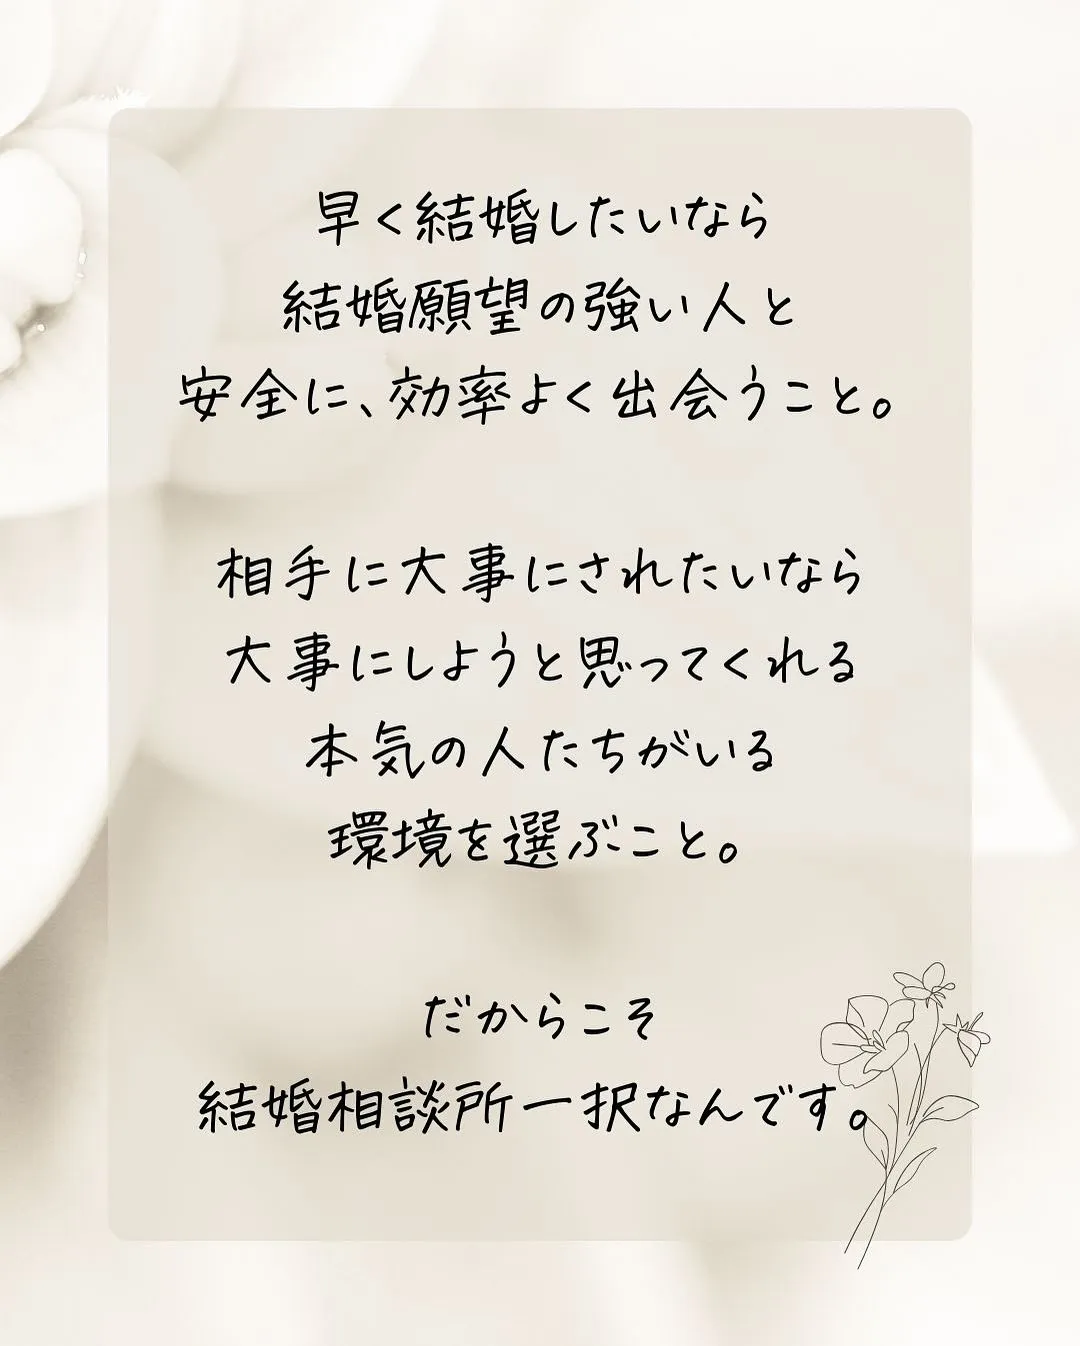 早く結婚したいなら
結婚願望の強い人と
安全に、効率よく出会うこと。
相手に大事にされたいなら
大事にしようと思ってくれる
本気の人たちがいる
環境を選ぶこと。
だからこそ
結婚相談所一択なんです。